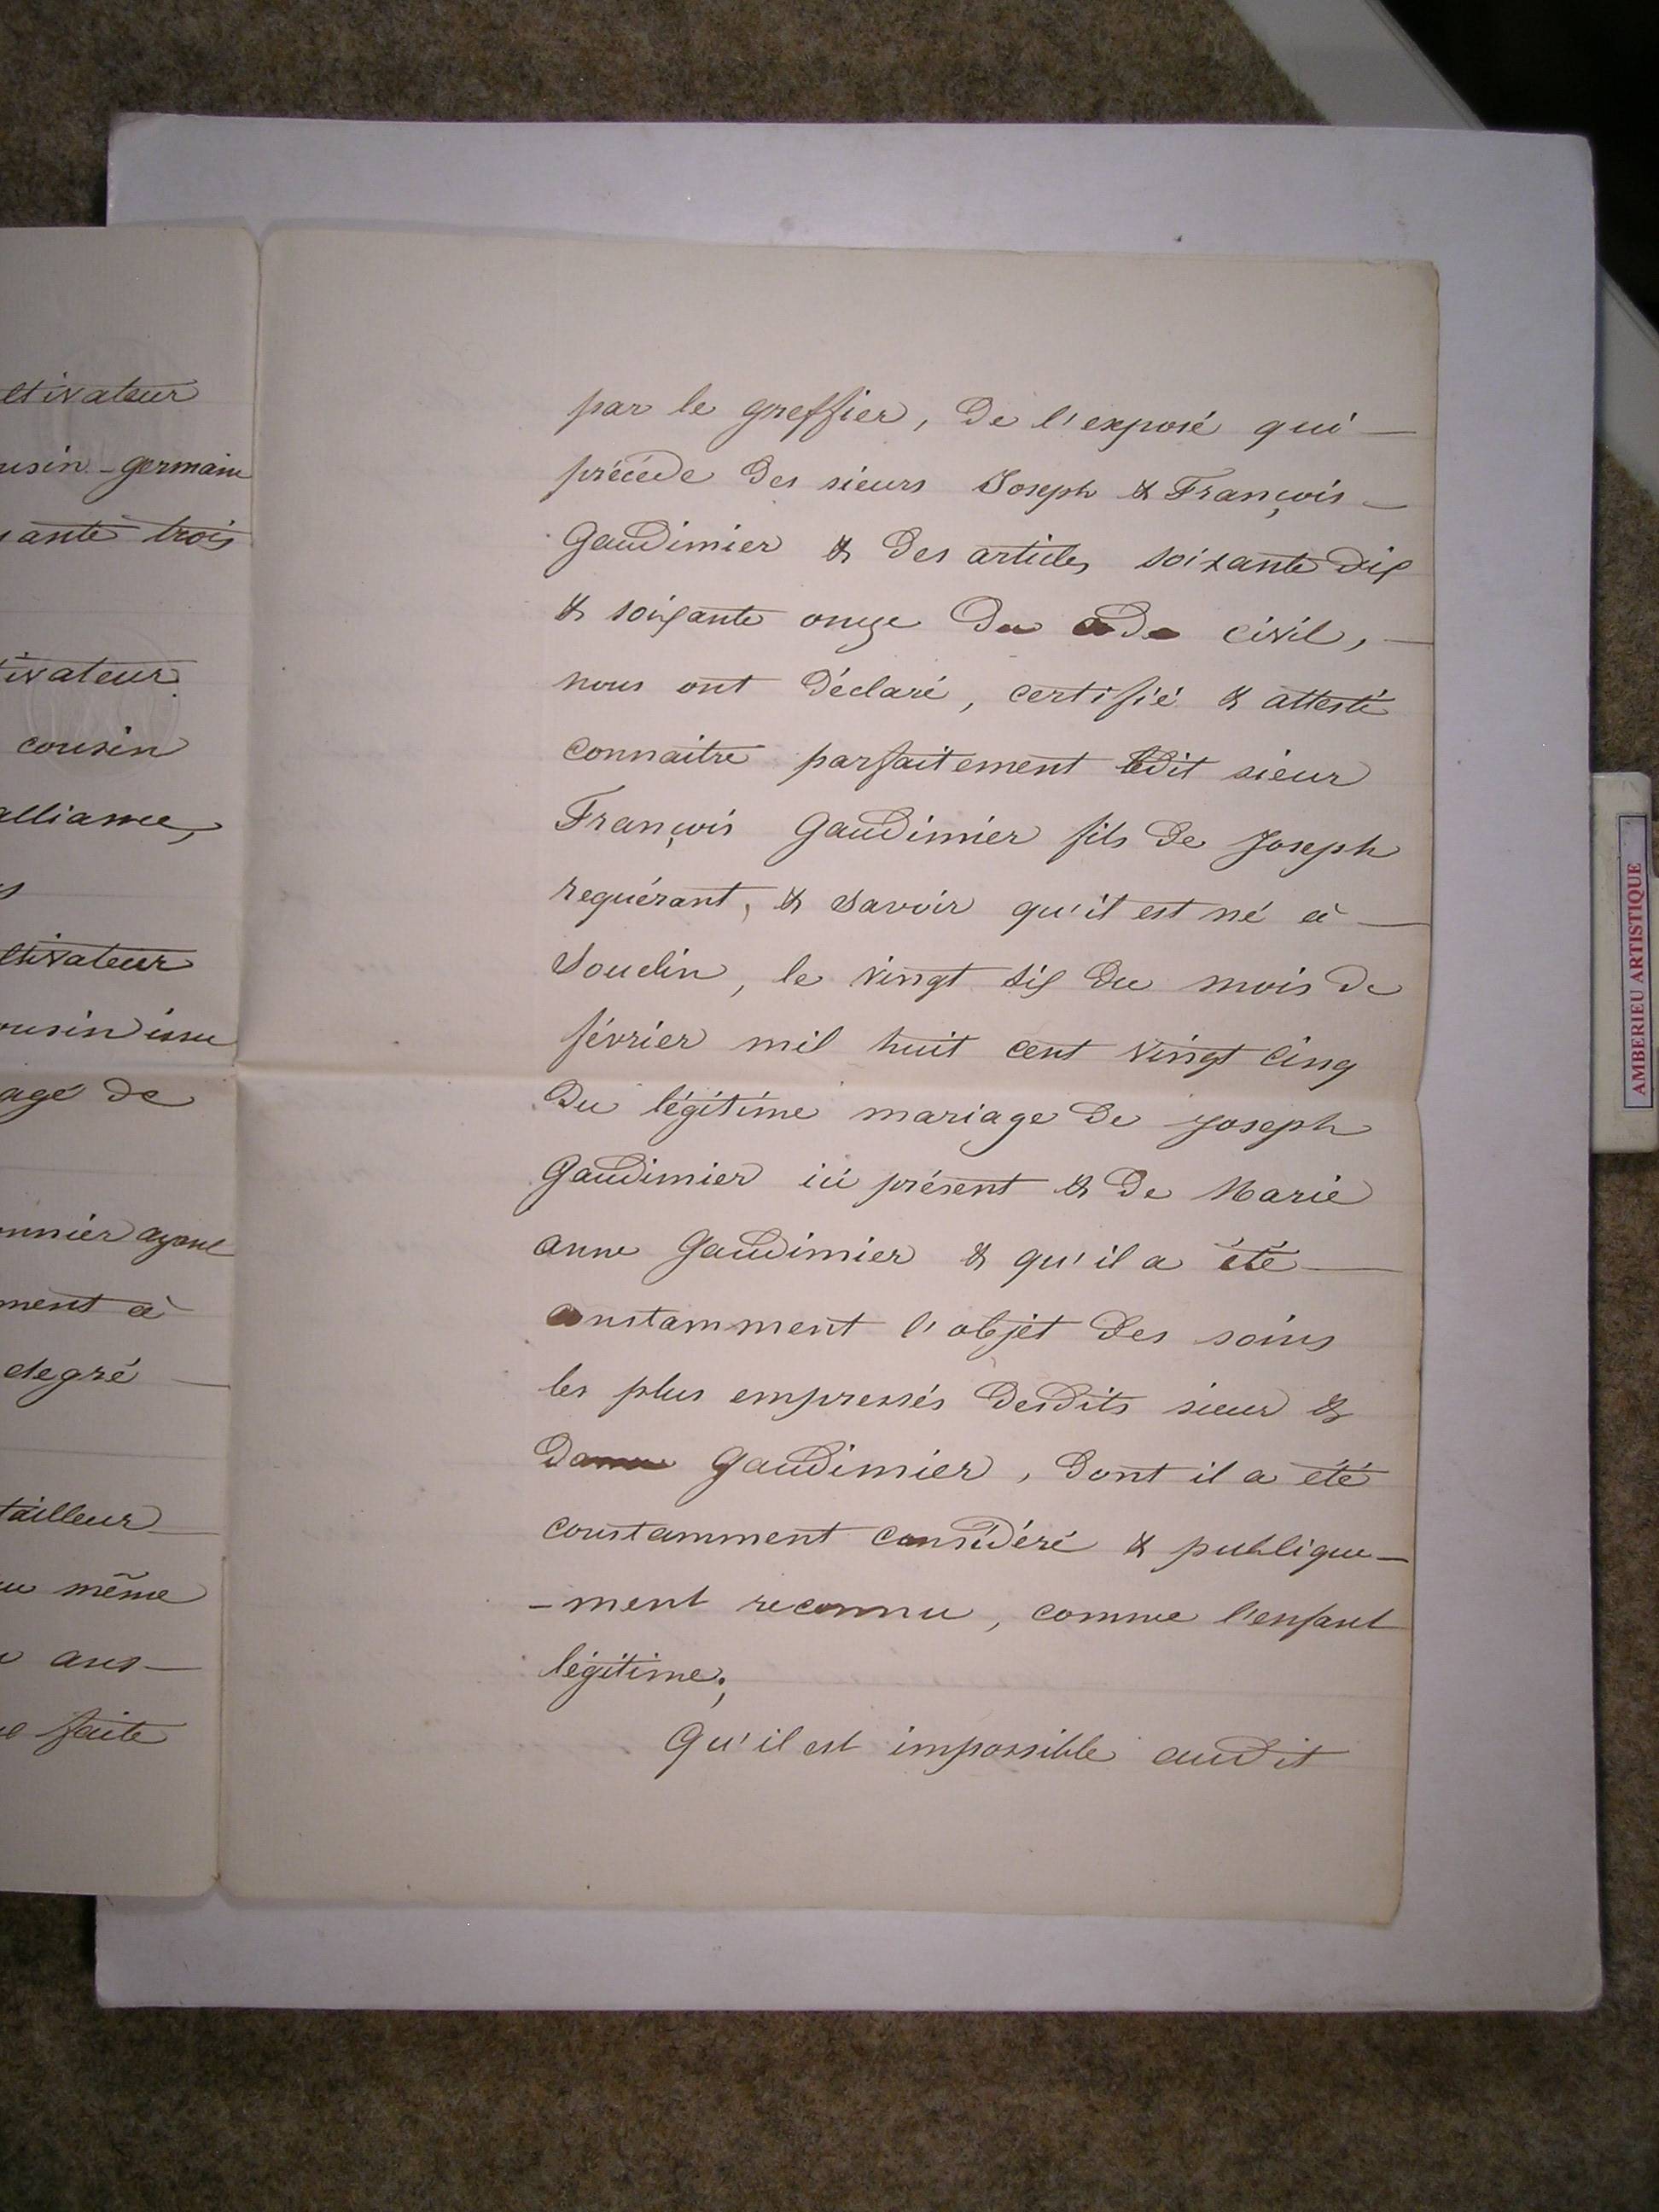 ltivateur
usin-germain
ante trois
tivateur
cousin
alliance,
s
ltivateur
ousin issu
agé de
nnier ayant
ment à
degré —
tailleur
u même
ans —
faite
par le greffier, de l'exposé qui —
précède des sieurs Joseph & François —
Gaudimier & des articles soixante dix
& soixante onze du code civil, —
nous ont déclaré, certifié & attesté
connaitre parfaitement ledit sieur
François Gaudimier fils de Joseph
requérant, & savoir qu'il est né à —
Souclin, le vingt six du mois de
février mil huit cent vingt cinq
du légitime mariage de Joseph
Gaudimier ici présent & de Marie
anne Gaudimier & qu'il a été —
constamment l'objet des soins
les plus empressés desdits sieur &
dame Gaudimier, dont il a été
constamment considéré & publique-
-ment reconnu, comme l'enfant
légitime;
Qu'il est impossible audit
AMBERIEU ARTISTIQUE